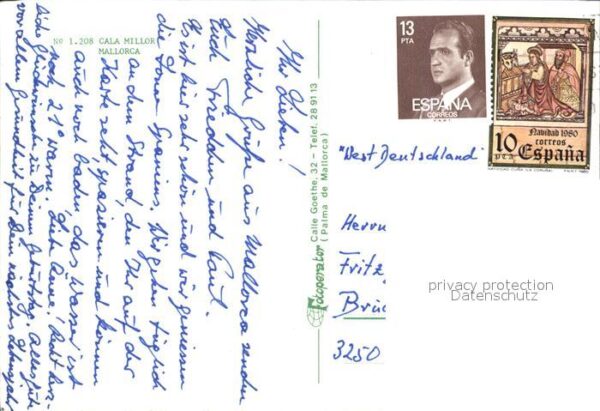 No 1.208 CALA MILLOR
MALLORCA
Ihr Lieben!
Herzliche Grüße aus Mallorca senden
Euch Friedchen und Paul.
Es ist hier sehr schön und wir geniessen
die Sonne Spaniens. Wir gehen täglich
an dem Strand, den Ihr auf der
Karte seht, spazieren und können
auch noch baden, das Wasser ist
noch 21° warm. Liebe Anne! Recht herz-
liche Glückwünsche zu Deinem Geburtstag. Alles Gute
vor allem Gesundheit für Dein nächstes Lebensjahr
Fotoperator Calle Goethe, 32 - Telef. 28 91 13
(Palma de Mallorca)
13
PTA
ESPAÑA
CORREOS
Navidad 1980
correos
10 pta España
"West Deutschland"
Herrn
Fritz
Brüc
3250
privacy protection
Datenschutz